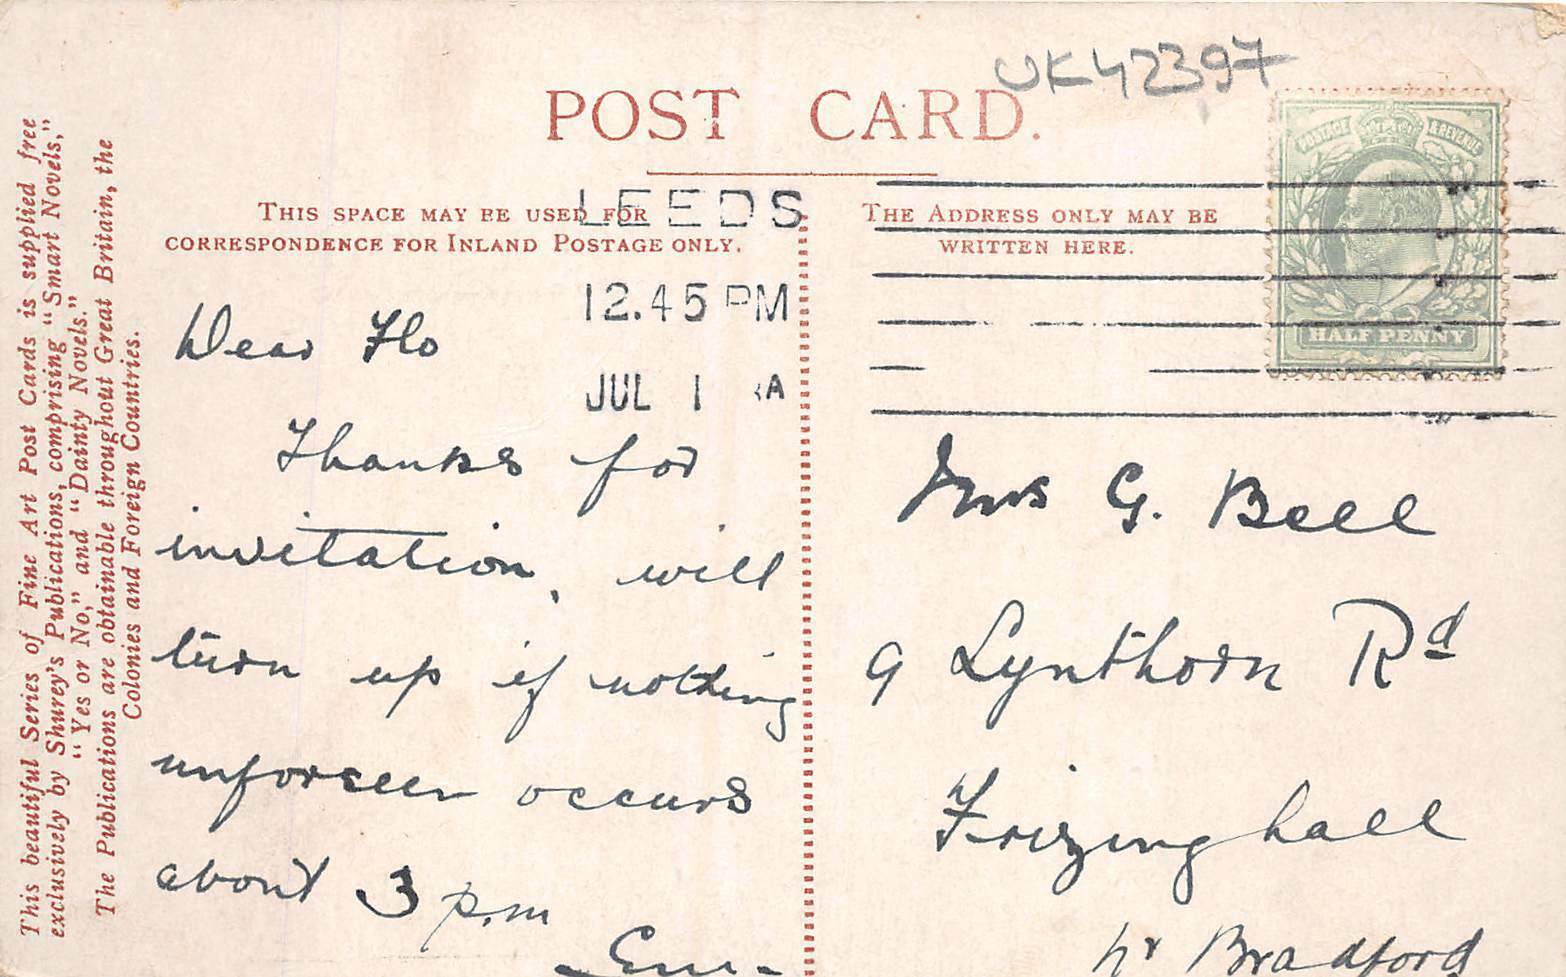 UK42397
POST CARD.
THIS SPACE MAY BE USED FOR
CORRESPONDENCE FOR INLAND POSTAGE ONLY.
THE ADDRESS ONLY MAY BE
WRITTEN HERE.
LEEDS
12.45 PM
JUL 1
POSTAGE & REVENUE
HALF PENNY
Dear Flo
Thanks for
invitation, will
turn up if nothing
unforseen occurs
about 3 p.m
Mrs G. Bell
9 Lynthorn Rd
Frizinghall
nr Bradford
This beautiful Series of Fine Art Post Cards is supplied free
exclusively by Shurey's Publications, comprising "Smart Novels,"
"Yes or No," and "Dainty Novels."
The Publications are obtainable throughout Great Britain, the
Colonies and Foreign Countries.